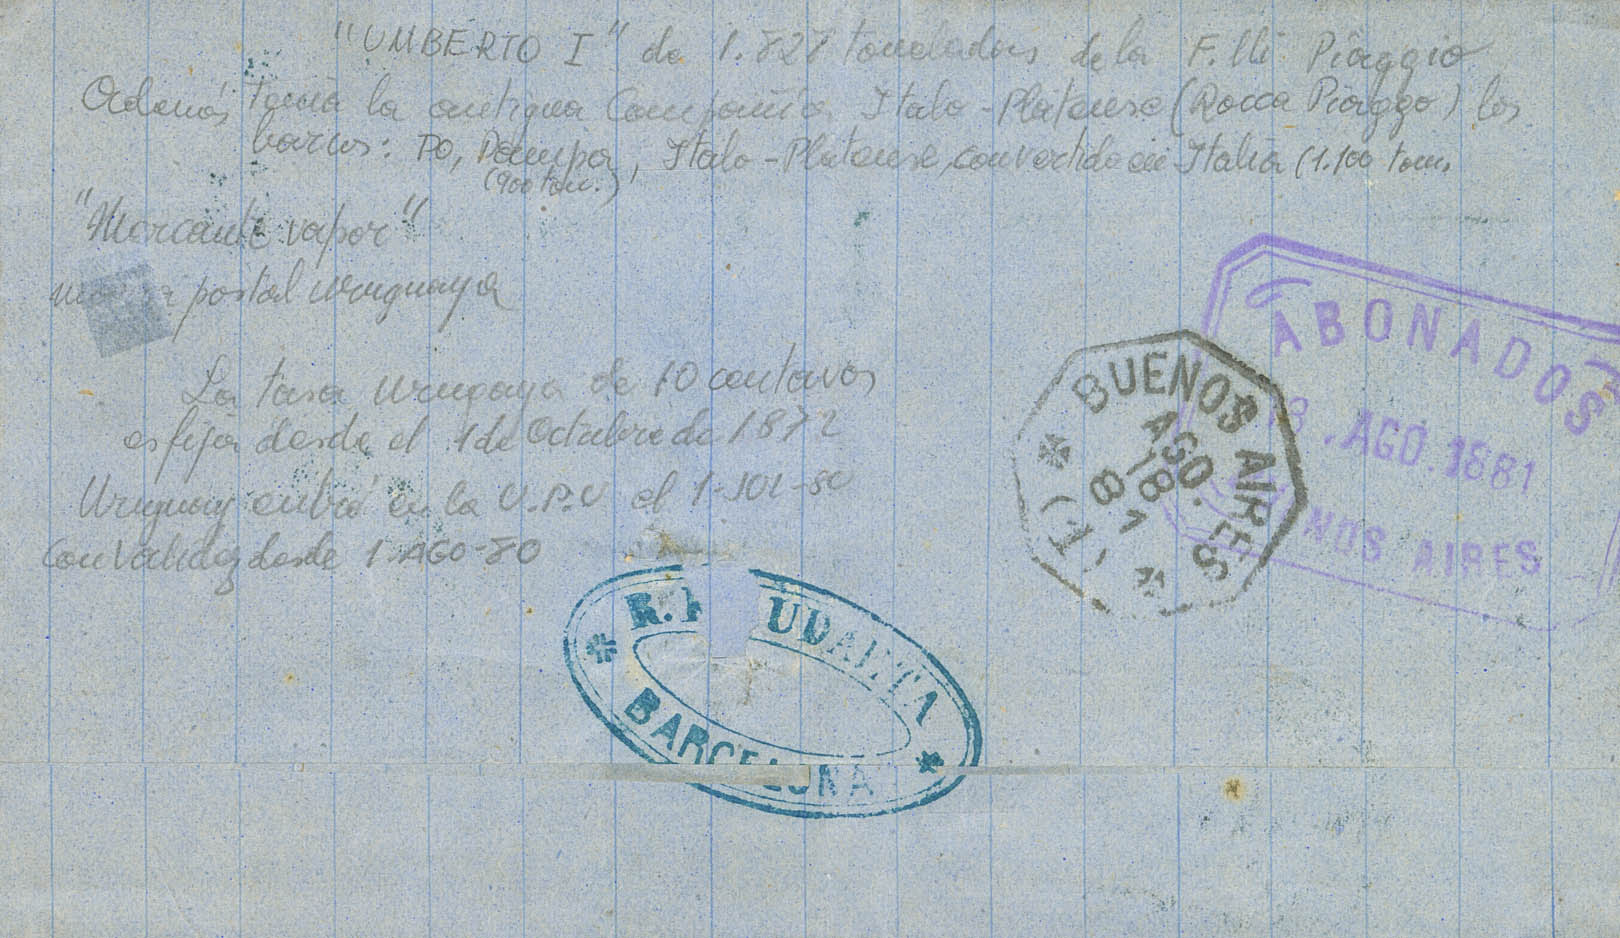 "UMBERTO I" de 1.828 toneladas de la F.lli Piaggio
Además tenía la antigua Compañía Italo-Platense (Rocca Piaggo) los
barcos: Po, Pampa, Italo-Platense, convertido en Italia (1.100 ton.
(900 ton.)
"Mercante vapor"
postal uruguaya
La tasa Uruguaya de 10 centavos
es fija desde el 1 de Octubre de 1872
Uruguay entró en la U.P.U el 1-JUL-80
Con validez desde 1-AGO-80
ABONADOS
18.AGO.1881
NOS AIRES
BUENOS AIRES
AGO. 18
81
(1.)
R. UDANITA
BARCELONA